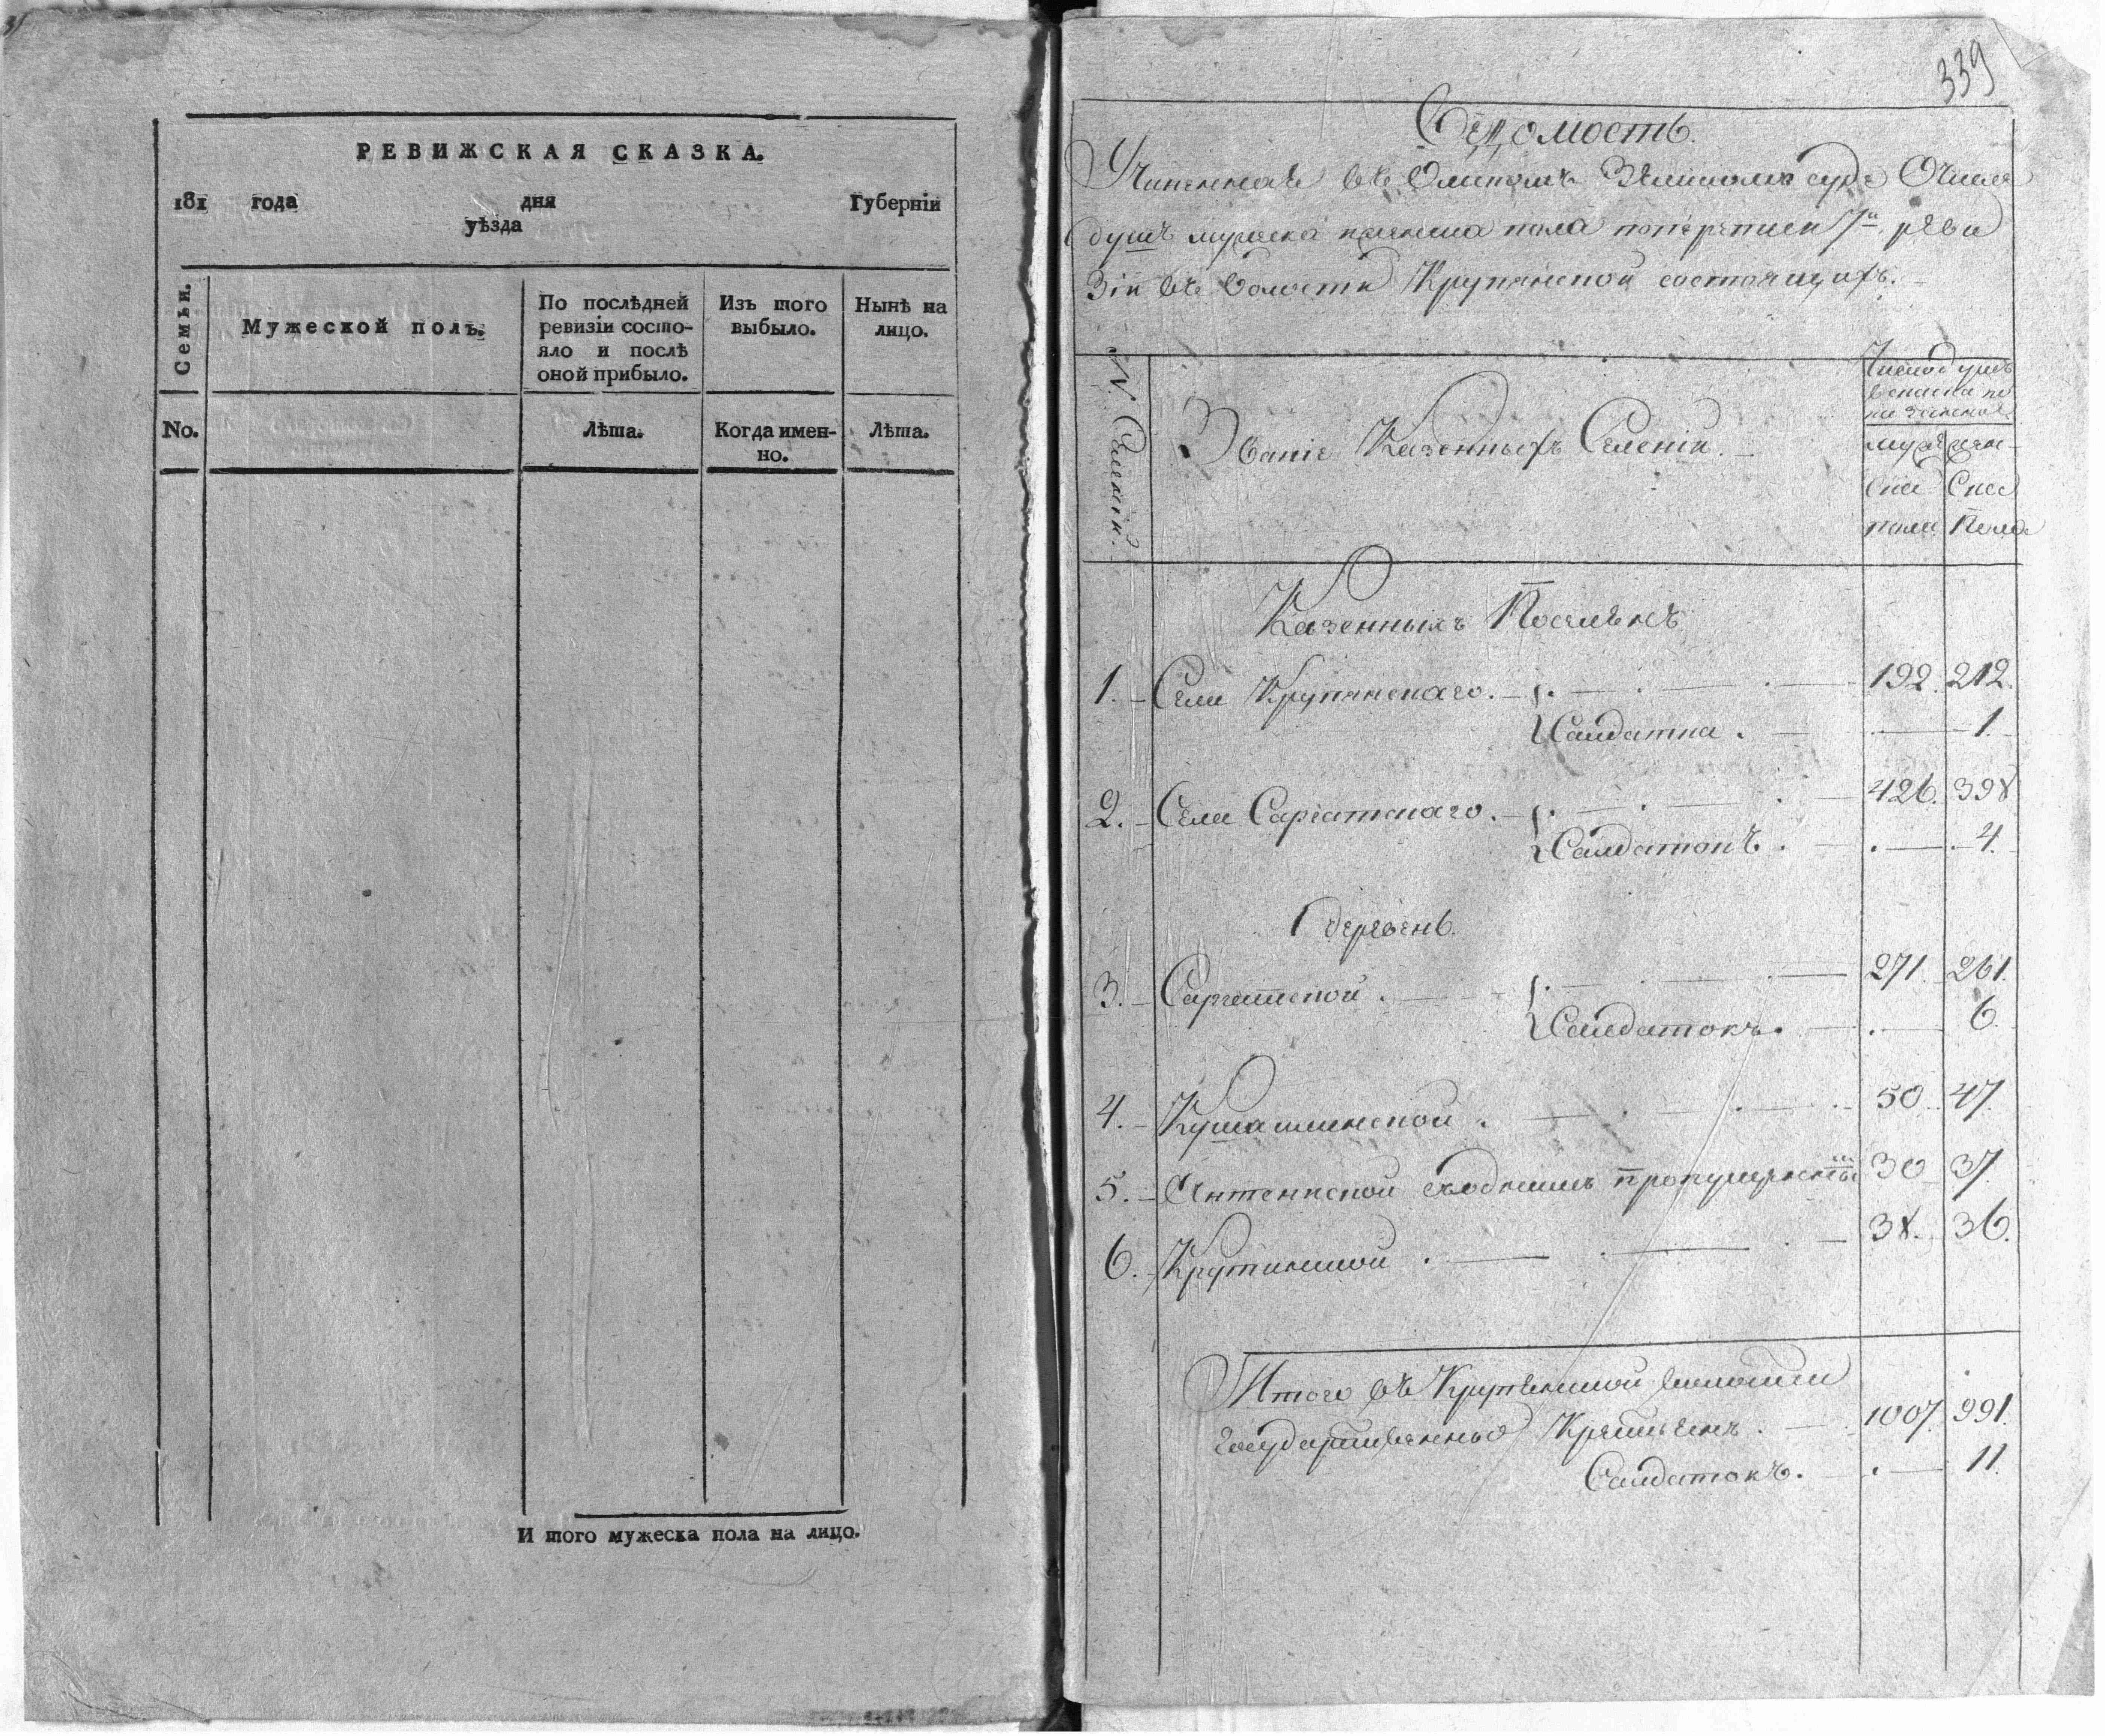 РЕВИЖСКАЯ СКАЗКА.
181 года дня Губерніи
уѣзда
Семьи.
Мужеской полъ.
По послѣдней
ревизіи состо-
яло и послѣ
оной прибыло.
Изъ того
выбыло.
Нынѣ на
лицо.
No.
Лѣта.
Когда имен-
но.
Лѣта.
И того мужеска пола на лицо.
339
Ведомость.
Учиненная въ Омскомъ Земскомъ суде О числе
душъ мужеска и женска пола по переписи 7й реви
зіи въ волости Крупянской состоящихъ.
№ Селеніи.
Званіе Казенныхъ Селеніи.
Число душъ
мужс жен-
ска Ска
пола Пола
Казенныхъ Поселянъ
1. Села Крупянскаго. 192. 212.
Салдатка. 1.
2. Села Саргатскаго. 426. 398
Салдатокъ. 4.
деревень
3. Саргатской. 271. 261.
Салдатокъ. 6.
4. Кушашинской. 50. 47.
5. Интениской съоднимъ пропущенны 30 37.
6. Крутинской. 38. 36.
Итого въ Крупянской волости
государственныхъ Крестьянъ. 1007. 991.
Салдатокъ. 11.